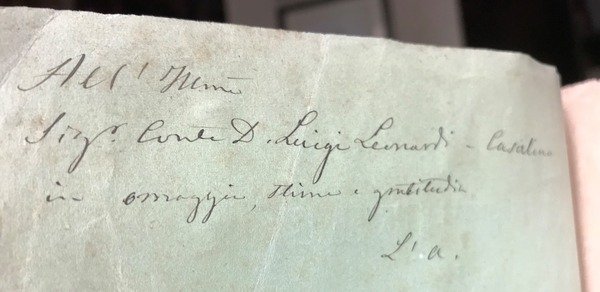 All' Illmo
Sigr. Conte D. Luigi Leonardi - Casalino
in omaggio, stima e gratitudin
L' a.